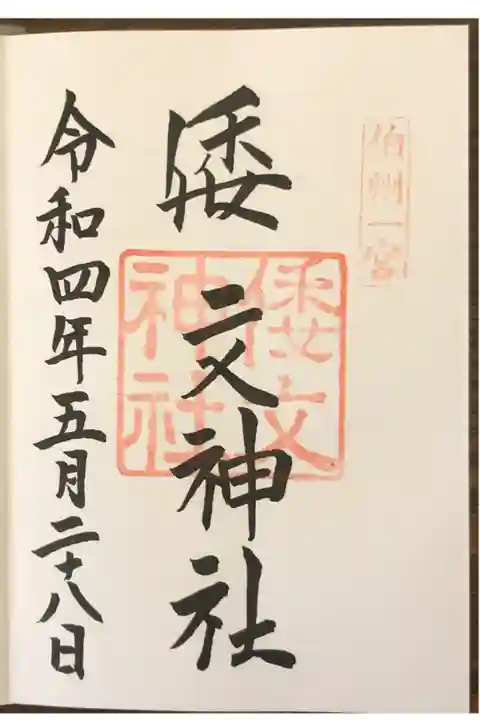 伯州一宮
倭文神社
倭文神社
令和四年五月二十八日